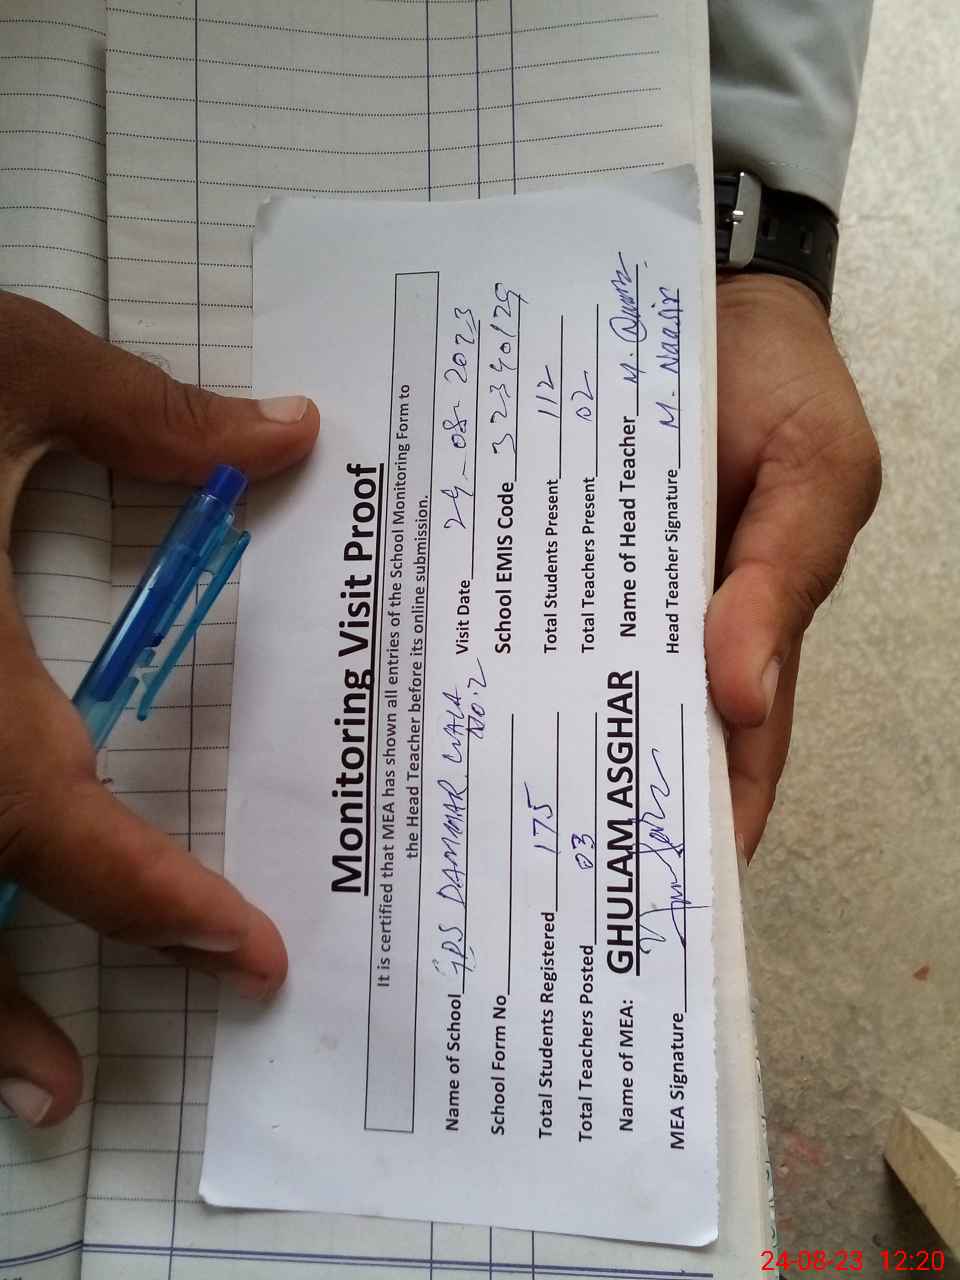 Monitoring Visit Proof
It is certified that MEA has shown all entries of the School Monitoring Form to
the Head Teacher before its online submission.
Name of School GPS DAMMAR WALA No.2 Visit Date 24-08-2023
School Form No School EMIS Code 32340129
Total Students Registered 175 Total Students Present 112
Total Teachers Posted 03 Total Teachers Present 02
Name of MEA: GHULAM ASGHAR Name of Head Teacher M.
MEA Signature Head Teacher Signature M. Naasir
24-08-23 12:20